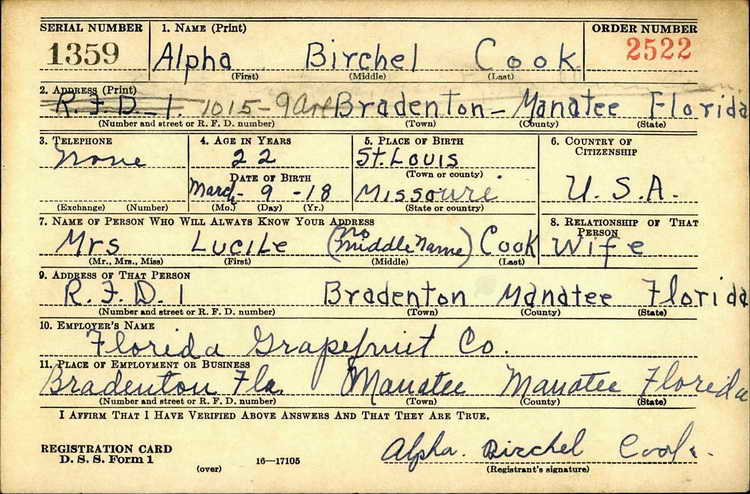 SERIAL NUMBER 1. NAME (Print) ORDER NUMBER
1359 Alpha Birchel Cook 2522
(First) (Middle) (Last)
2. ADDRESS (Print)
R.F.D-1. 1015-9 Ave Bradenton - Manatee Florida
(Number and street or R. F. D. number) (Town) (County) (State)
3. TELEPHONE 4. AGE IN YEARS 5. PLACE OF BIRTH 6. COUNTRY OF CITIZENSHIP
None 22 St. Louis
(Town or county)
DATE OF BIRTH
March - 9 - 18 Missouri U.S.A.
(Exchange) (Number) (Mo.) (Day) (Yr.) (State or country)
7. NAME OF PERSON WHO WILL ALWAYS KNOW YOUR ADDRESS 8. RELATIONSHIP OF THAT PERSON
Mrs Lucile (no middle name) Cook Wife
(Mr., Mrs., Miss) (First) (Middle) (Last)
9. ADDRESS OF THAT PERSON
R.F.D. 1 Bradenton Manatee Florida
(Number and street or R. F. D. number) (Town) (County) (State)
10. EMPLOYER'S NAME
Florida Grapefruit Co.
11. PLACE OF EMPLOYMENT OR BUSINESS
Bradenton Fla. Manatee Manatee Florida
(Number and street or R. F. D. number) (Town) (County) (State)
I AFFIRM THAT I HAVE VERIFIED ABOVE ANSWERS AND THAT THEY ARE TRUE.
REGISTRATION CARD Alpha. Birchel Cook.
D. S. S. Form 1 (over) 16—17105 (Registrant's signature)